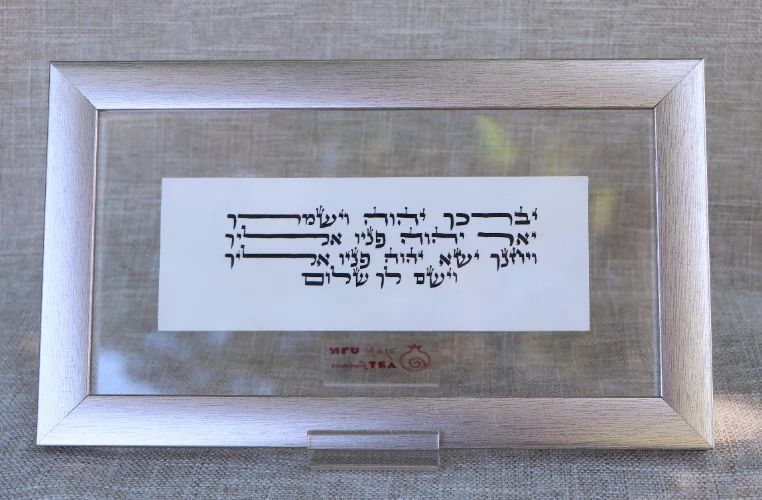 יברכך יהוה וישמרך
יאר יהוה פניו אליך
ויחנך ישא יהוה פניו אליך
וישם לך שלום